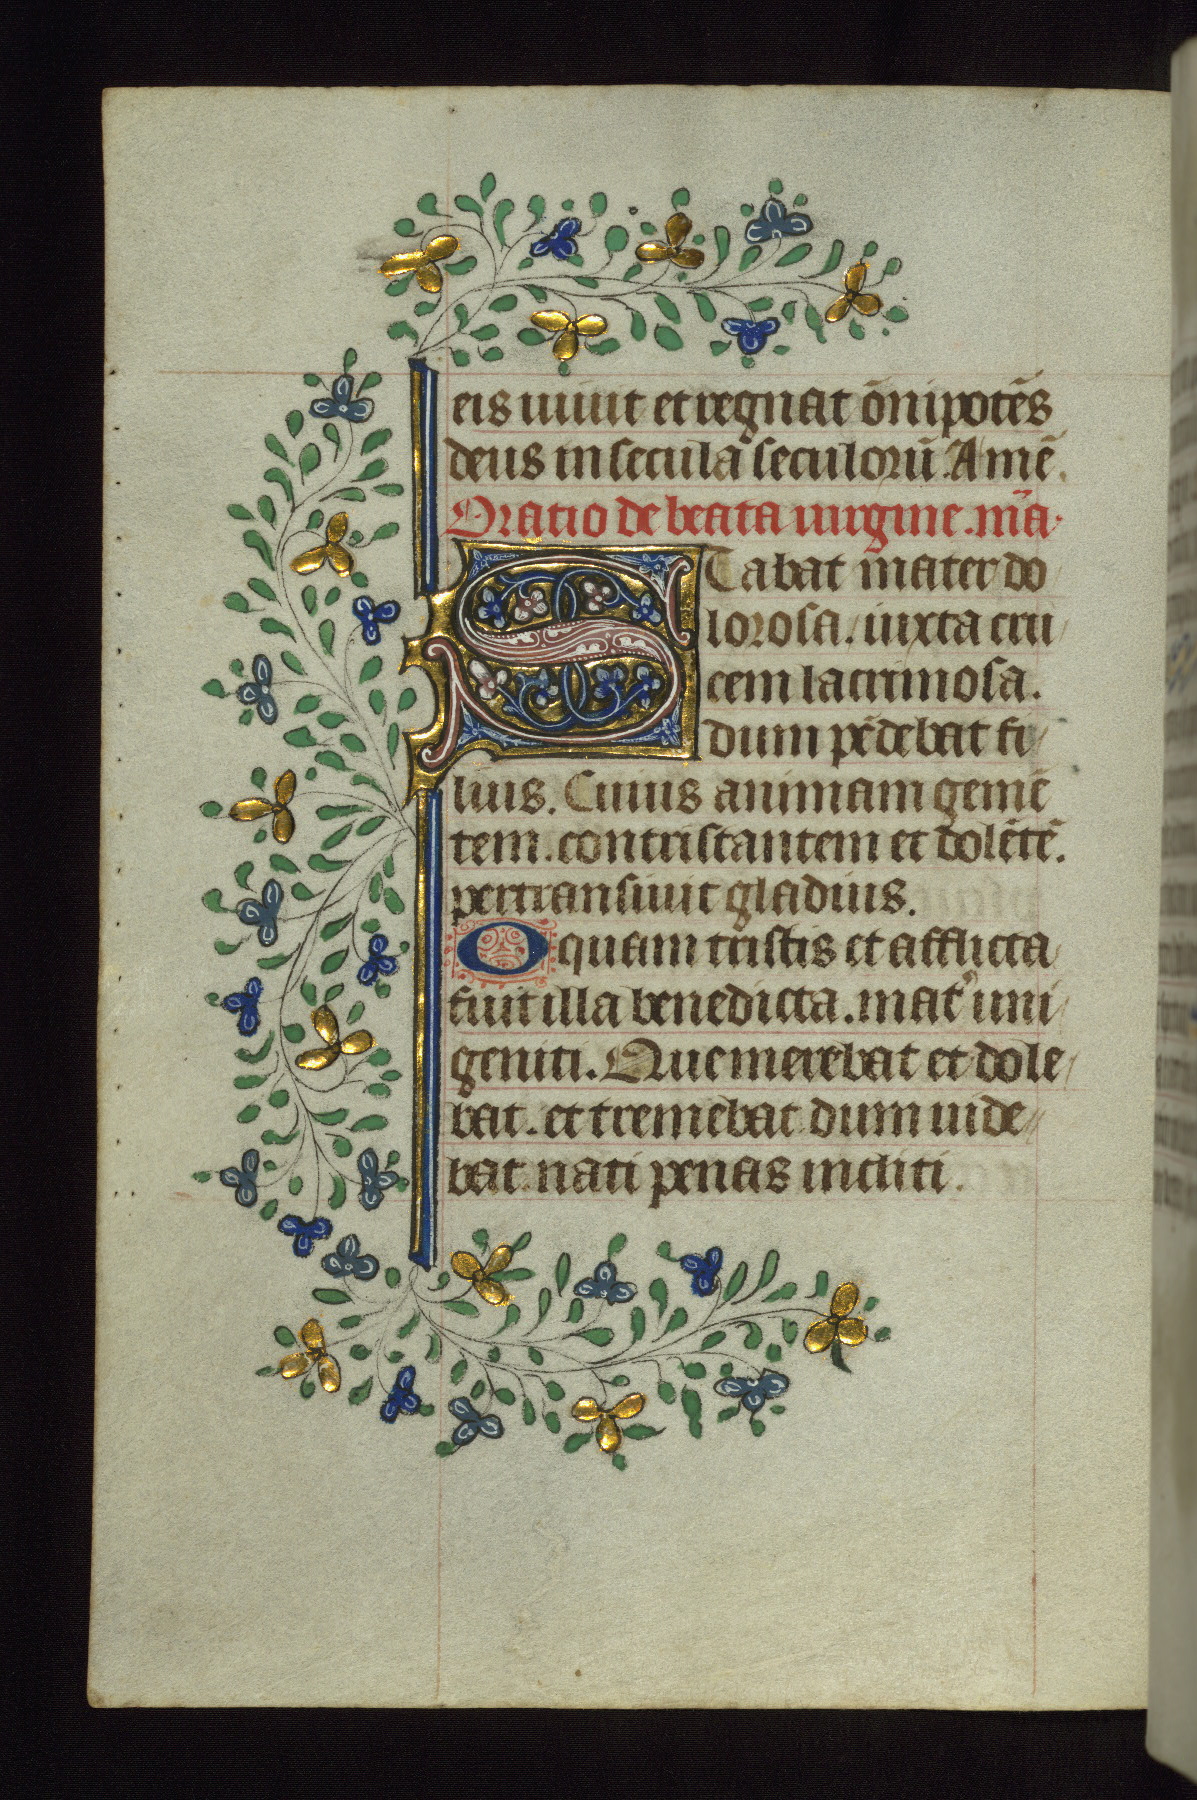 eis uiuit et regnat ōnipotēs
deus in secula seculorū. Amē.
Oratio de beata uirgine. m̄a.
Stabat mater do
lorosa. iuxta cru
cem lacrimosa.
dum pēdebat fi
lius. Cuius animam gemē
tem. contristantem et dolētē.
pertransiuit gladius.
O quam tristis et afflicta
fuit illa benedicta. mat᾽ uni
geniti. Que merebat et dole
bat. et tremebat dum uide
bat. nati penas incliti.